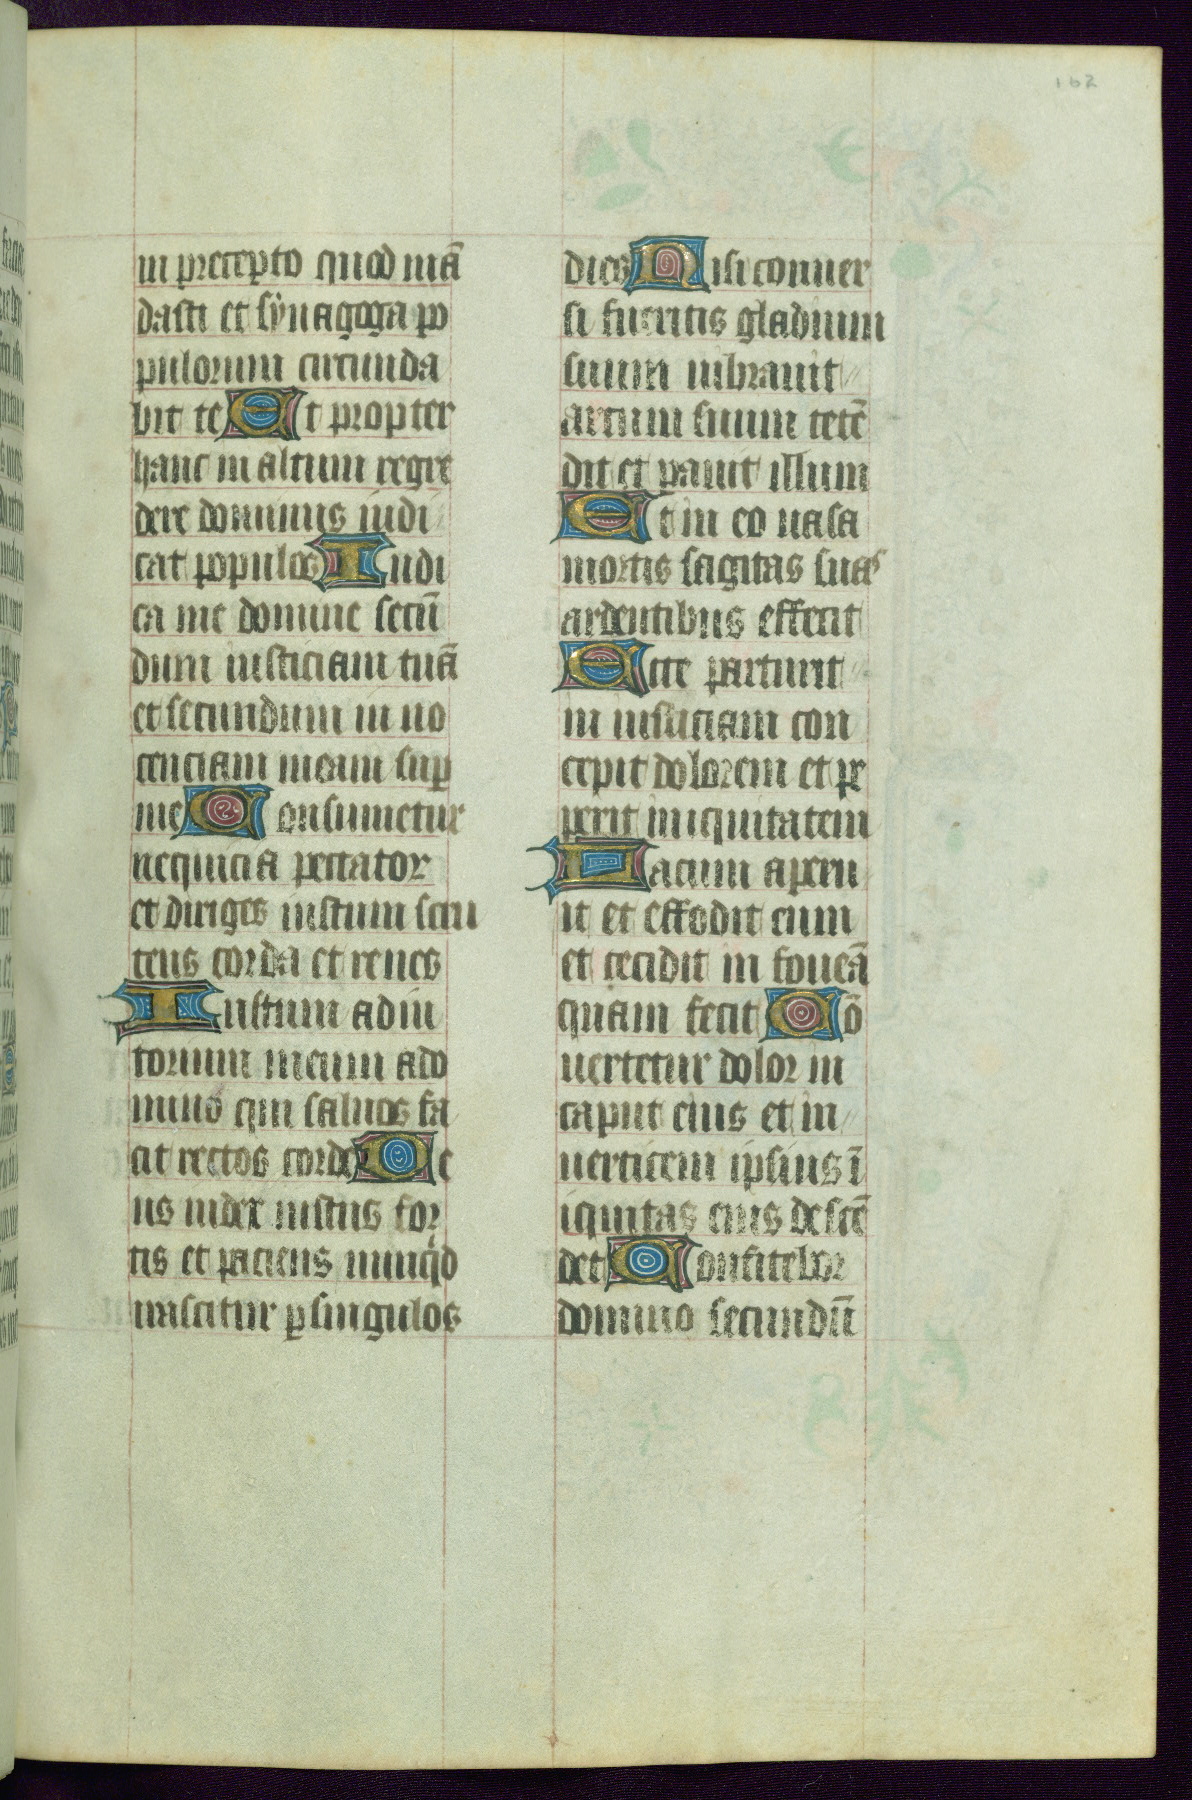 162
in precepto quod mā
dasti et sÿnagoga po
pulorum circunda
bit te Et propter
hanc in altum regre
dere dominus iudi
cat populos Iudi
ca me domine secū
dum iusticiam tuā
et secundum in no
cenciam meam sup
me Consumetur
nequicia peccator
et diriges iustum scru
tens corda et renes
Iustum adiu
torium meum a do
mino qui saluos fa
cit rectos corde De
us iudex iustus for
tis et paciens nunqid
irascitur ꝑ singulos
dies Nisi conuer
si fueritis gladium
suum uibrauit
arcum suum tetē
dit et parauit illum
Et in eo uasa
mortis sagitas suas
ardentibus effecit
Ecce parturit
in iusticiam con
cepit dolorem et pe
perit iniquitatem
Lacum aperu
it et effodit eum
et cecidit in foueā
quam fecit Cō
uertetur dolor in
caput eius et in
uerticem ipsius ī
iquitas eius descē
det Confitebor
domino secundū